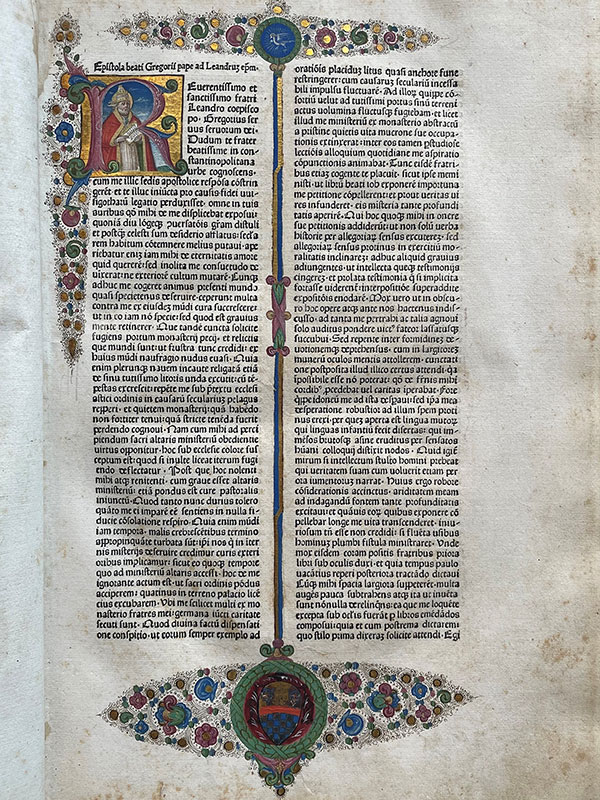 Epistola beati Gregorii pape ad Leandrū epm̄.
Euerentissimo et
sanctissimo fratri
Leandro coepisco
po. Gregorius ser
uus seruorum dei.
Dudum te frater
beatissime in con-
stantinopolitana
urbe cognoscens,
cum me illic sedis apostolice respōsa cōstrin
gerēt: et te illuc iniucta pro causis fidei uui-
sigothaꝝ legatio perduxisset. omne in tuis
auribus qđ mihi de me displicebat exposui:
quoniā diu lōgeqꝫ ꝯuersatiōis gr̄am distuli
et postqꝫ celesti sum desiderio afflatus: secula
rem habitum cōtemnere melius putaui. ape
riebatur enīȝ iam mihi de eternitatis amore
quid quererē: sed inolita me cōsuetudo de
uixerat: ne exteriorē cultum mutarē. Cunqꝫ
adhuc me cogeret animus presenti mundo
quasi specietenus deseruire: ceperunt multa
contra me ex eiusdeȝ mūdi cura succrescere:
ut in eo iam nō specie: sed quod est grauius
mente retinerer. Que tandē cuncta solicite
fugiens portum monasterij petij: et relictis
que mundi sunt: ut frustra tunc credidi: ex
huius mūdi naufragio nudus euasi. Quia
enim plerunqꝫ nauem incaute religatā etiā
de sinu tutissimo litoris unda excutit: cū tē-
pestas excrescit: repēte me sub p̄textu eccl̄esi
astici ordinis in causarū secularium pelagus
repperi: et quietem monasterij: quā habēdo
non fortiter tenui: quā stricte tenēda fuerit
perdendo cognoui. Nam cum mihi ad perci
piendum sacri altaris ministeriū obediētie
uirtus opponitur: hoc sub ecclesie colore sus
ceptum est: quod si inulte liceat iterum fugi
endo deflectatur. Post que hoc nolenti
mihi atqꝫ renitenti: cum graue esset altaris
ministeriū: etiā pondus est cure pastoralis
iniunctū. Quod tanto nunc durius tolero
quāto me ei imparē eē sentiens in nulla fi-
ducie cōsolatione respiro. Quia enim mūdi
iam tempora. malis crebrescētibus termino
appropinquāte turbata sūt: ipi nos qͥ in ter
nis misterijs deseruire credimur curis exteri
oribus implicamur: sicut eo quoqꝫ tempore
quo ad ministeriū altaris accessi. hoc de me
ignorante actum est. ut sacri ordinis pōdus
acciperem: quatinus in terreno palacio licē
cius excubarem. Vbi me scilicet multi ex mo
nasterio fratres mei: germana iūcti caritate
secuti sunt. Quod diuina factū dispensati
one conspitio. ut eorum semper exemplo ad
oratiōis placidūȝ litus quasi anchore fune
restringerer: cum causarum seculariū incessa
bili impulsu fluctuarē. Ad illoꝝ quippe cō-
sortiū uelut ad tutissimi portus sinū terreni
actus uolumina fluctusqꝫ fugiebam: et licet
illud me ministeriū ex monasterio abstractū
a pristine quietis uita mucrone sue occupa
tionis extinxerat: inter eos tamen p studiose
lectiōis alloquium quotidiane me aspiratio
cōpunctionis animabat. Tunc eisdē fratri-
bus etiaȝ cogente te placuit: sicut ipse memi
nisti: ut librū beati iob exponere importuna
me petitione cōpellerent: et prout ueritas ui
res infunderet. eis misteria tante profundi
tatis aperirē. Qui hoc quoqꝫ mihi in onere
sue petitionis addiderūt: ut non solū uerba
historie per allegoriaꝝ sensus excuterez: sed
allegoriaꝝ sensus protinus in exercitiū mo-
ralitatis inclinarez: adhuc aliquid grauius
adiungentes. ut intellecta queqꝫ testimonijs
cingerez: et prolata testimonia qͥ si implicita
fortasse uiderent̄ interpositiōe supaddite
expositiōis enodarē. Mox uero ut in obscu
ro hoc opere atqꝫ ante nos hactenus indis-
cusso. ad tanta me pertrahi ac talia agnoui
solo auditus pondere uictꝰ fateor lassatusqꝫ
succubui. Sed repente inter formidinez de-
uotionemqꝫ deprehensus. cum in largitoreȝ
munerū oculos mentis attollerem: cunctati
one postposita illud illico certus attendi. qͣ
īpossibile esse nō poterat: qđ de frnīs mihi
cordibꝰ p̄cedebat uel caritas īperabat. Fore
qͥppe idoneū me ad ista despaui: sed ip̄a mea
desperatione robustior ad illum spem proti
nus erexi: per quez aperta est lingua mutoꝝ
qui linguas infantiū fecit disertas: qui im-
mēsos brutosqꝫ asine eruditus per sensatos
hūani colloquij distīxit modos. Quid igit̄
mirum si intellectum stulto homini prebeat
qui ueritatem suam cum uoluerit etiam per
ora iumentorū narrat. Huius ergo robore
cōsiderationis accinctus. ariditatem meam
ad indagandū fontem tante profunditatis
excitaui: et quāuis eoꝝ quibus exponere cō
pellebar longe me uita transcenderet. iniu-
riosum tn̄ esse non credidi: si fluēta usibus
hominuȝ plumbi fistula ministraret. Vnde
mox eisdem coram positis fratribus priora
libri sub oculis dixi: et quia tempus paulo
uacātius reperi posteriora tractādo dictaui
Cūqꝫ mihi spacia largiora suppeterēt: multa
augēs pauca subtrahens atqꝫ ita ut inuēta
sunt nōnulla derelinqͣns: ea que me loquēte
excepta sub oculis fuerāt p libros emēdādos
composui: quia et cum postrema dictarem:
quo stilo prima dixeraȝ solicite attendi. Egi